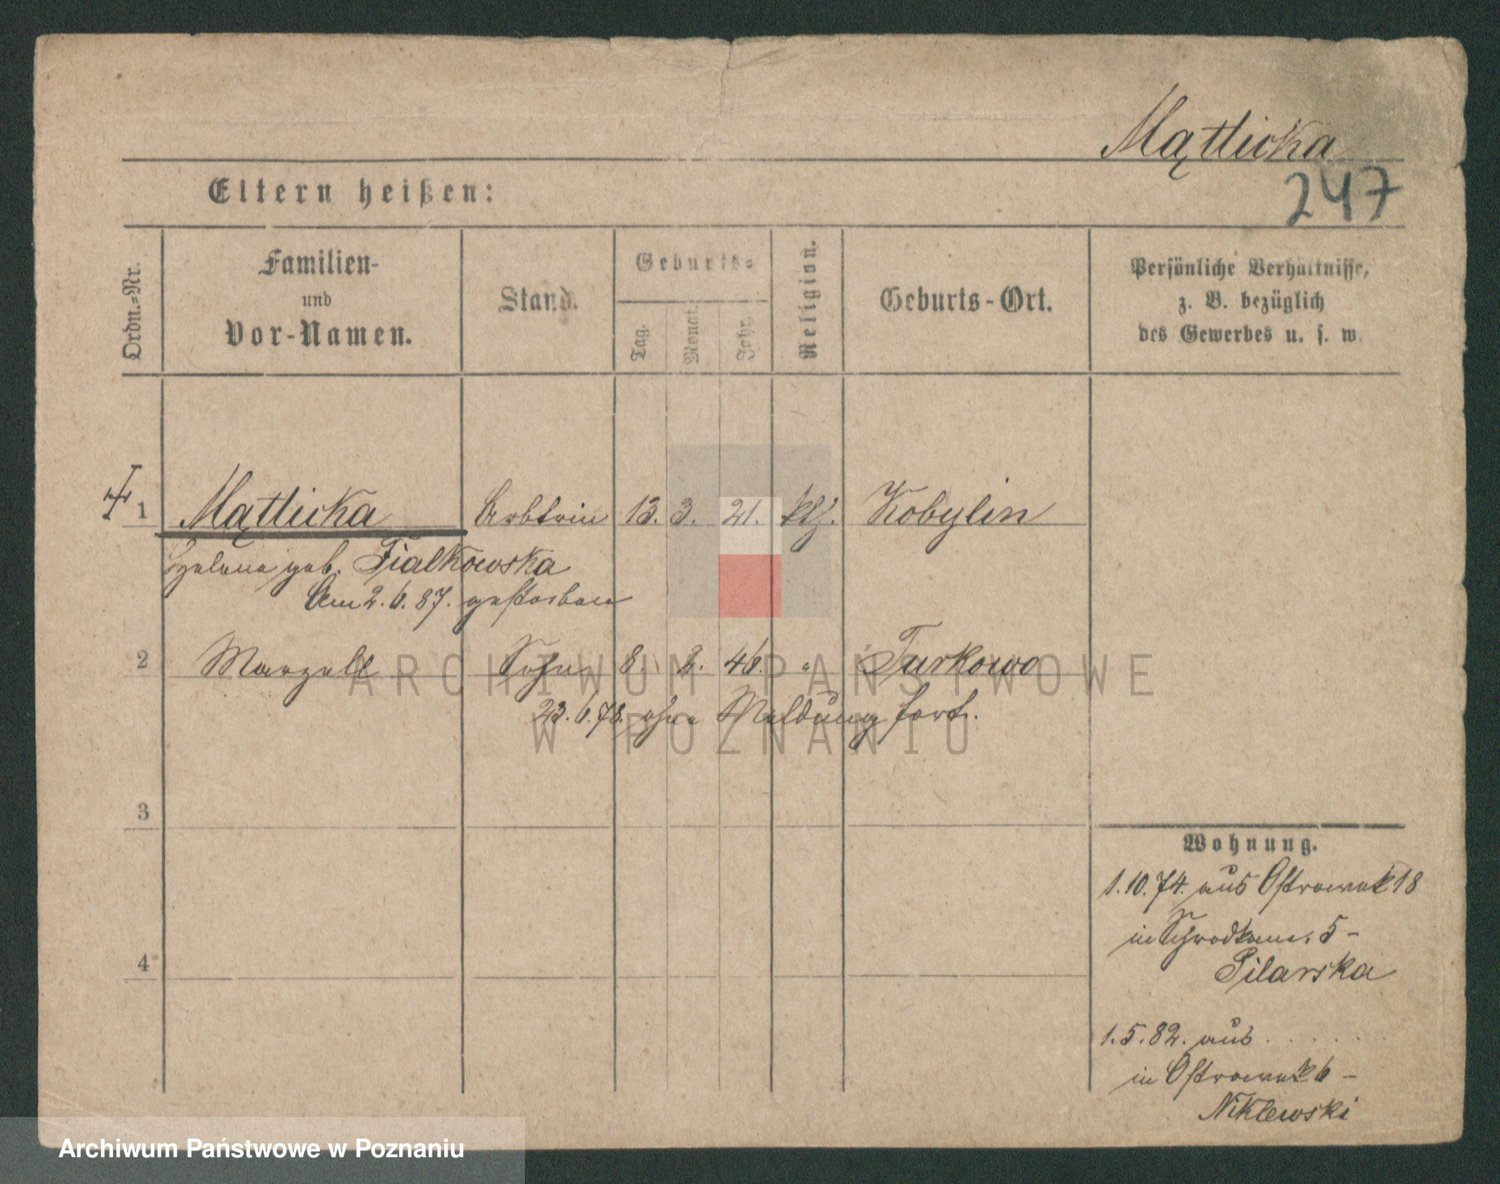 Mątlicka
247
Eltern heißen:
Ordn.-Nr.
Familien-
und
Vor-Namen.
Stand.
Geburts-
Tag.
Monat.
Jahr.
Religion.
Geburts-Ort.
Persönliche Verhältnisse,
z. B. bezüglich
des Gewerbes u. s. w.
1 Mątlicka Arbtrin 13. 3. 21. kth. Kobylin
Helena geb. Fialkowska
Am 2. 6. 87. gestorben
2 Marzell Sohn 8 2. 46. " Turkowo
23. 6. 78. ohne Meldung fort.
3
4
Wohnung.
1. 10. 74. aus Ostrowek 18
in Schrodkam. 5 -
Pilarska
1. 5. 82. aus . . . . . .
in Ostrowek 6 -
Niklewski
ARCHIWUM PAŃSTWOWE
W POZNANIU
Archiwum Państwowe w Poznaniu